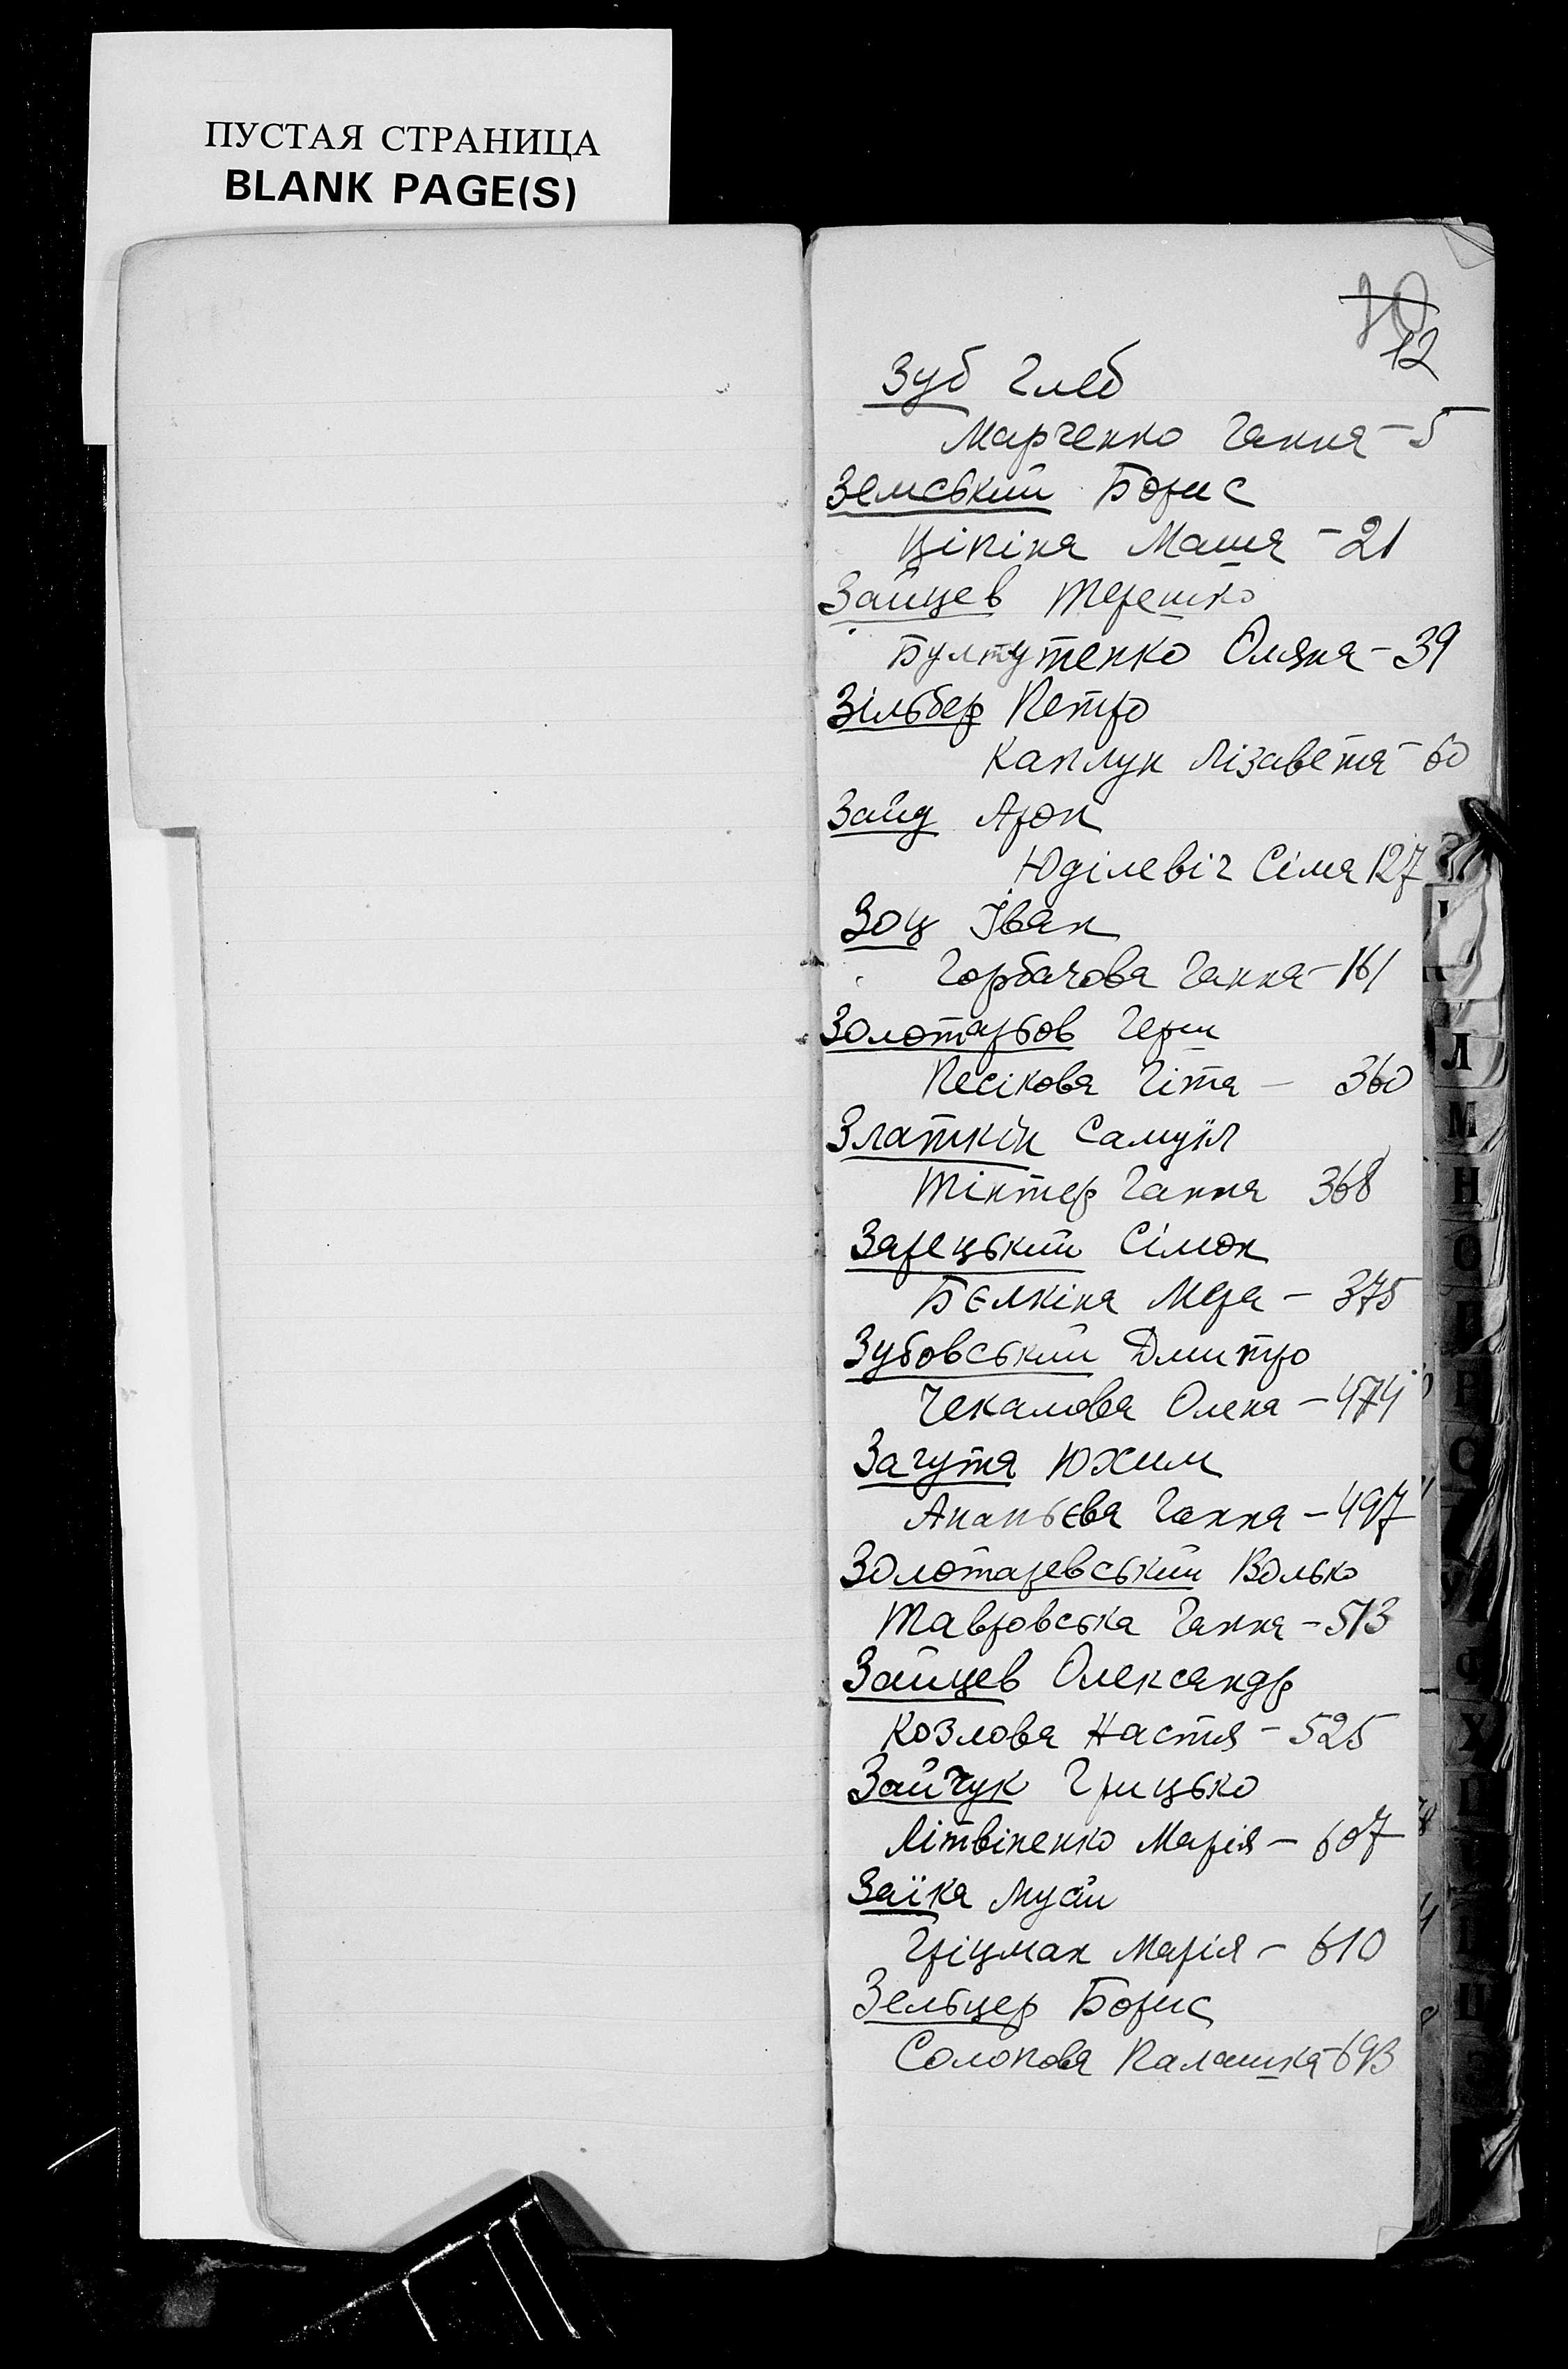 ПУСТАЯ СТРАНИЦА
BLANK PAGE(S)
10
12
Зуб Глеб
Марченко Ганна - 5
Земський Борис
Ціпіна Маша - 21
Зайцев Терешко
Булгутенко Оляна - 39
Зільбер Петро
Каплун Лізавета - 60
Зайд Арон
Юділевіч Сіма 127
Зоц Іван
Горбачова Ганна - 161
Золотарьов Герш
Песікова Гіта - 360
Златкін Самуїл
Тінтер Ганна 368
Зарецький Сімон
Бєлкіна Мера - 375
Зубовський Дмитро
Чекалова Олена - 474
Загута Юхим
Ананьєва Ганна - 497
Золотаревський Волько
Тавровська Ганна - 513
Зайцев Олександр
Козлова Настя - 525
Зайчук Грицько
Літвіненко Марія - 607
Заїка Мусій
Гріцман Марія - 610
Зельцер Борис
Солопова Палашка - 693
Л
М
Н
О
П
Р
С
У
Ф
Х